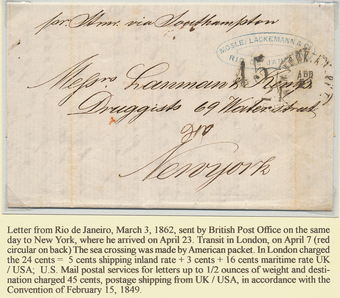 per Stmr. via Southampton
MOSLE, LACKEMANN &
RIO
45
Messrs Lanman & Kemp
Druggists 69 Water street
New york
Letter from Rio de Janeiro, March 3, 1862, sent by British Post Office on the same
day to New York, where he arrived on April 23. Transit in London, on April 7 (red
circular on back) The sea crossing was made by American packet. In London charged
the 24 cents = 5 cents shipping inland rate + 3 cents + 16 cents maritime rate UK
/ USA; U.S. Mail postal services for letters up to 1/2 ounces of weight and desti-
nation charged 45 cents, postage shipping from UK / USA, in accordance with the
Convention of February 15, 1849.